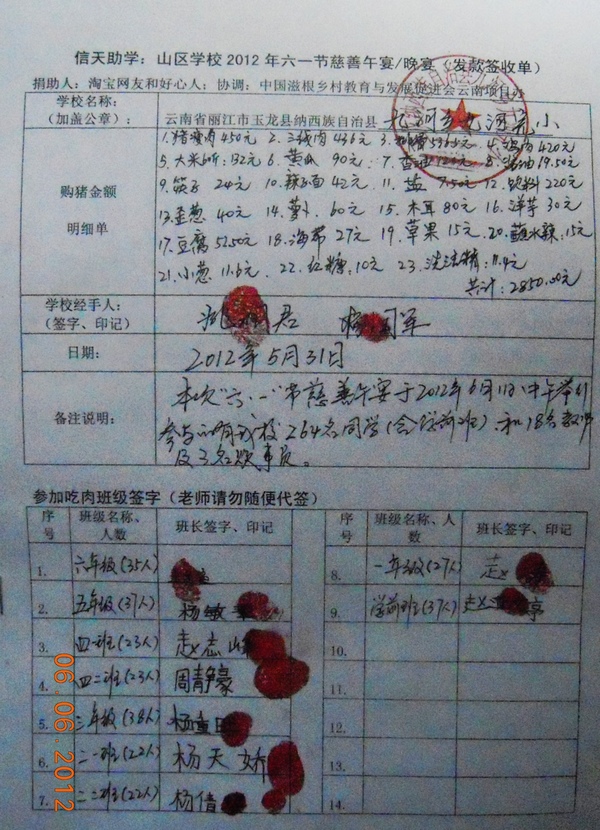 信天助学：山区学校2012年六一节慈善午宴/晚宴（发款签收单）
捐助人：淘宝网友和好心人；协调：中国滋根乡村教育与发展促进会云南项目办
学校名称：
（加盖公章）：
云南省丽江市玉龙县纳西族自治县
小
购猪金额
明细单
1.猪瘦肉450元 2.三线肉436元 3. 4. 420元
5.大米60斤：132元 6.黄瓜 90元 7. 8. 19.50元
9.筷子 24元 10.辣子面42元 11.盐 7.50元 12.饮料220元
13. 葱 40元 14.萝卜 60元 15.木耳80元 16.洋芋30元
17.豆腐52.50元 18.海带27元 19.草果15元 20. 水辣：15元
21.小葱11.6元 22.红糖：10元 23.洗洁精：11.4元
共计：2850.00元
学校经手人：
（签字、印记）
君 军
日期：
2012年5月31日
备注说明：
本次"六·一"节慈善午宴于2012年6月1日中午举行
参与的有我校264名同学(含学前班)、和18名教师
及3名炊事员。
参加吃肉班级签字（老师请勿随便代签）
序号 班级名称、人数 班长签字、印记 序号 班级名称、人数 班长签字、印记
1. 六年级(35人)
2. 五年级(37人) 杨敏
3. 四一班(23人) 赵志
4. 四二班(23人) 周静豪
5. 三年级(38人) 杨
6. 二一班(22人) 杨天娇
7. 二二班(22人) 杨倩
8. 一年级(27人) 赵
9. 学前班(37人) 赵
10.
11.
12.
13.
14.
06 06 2012